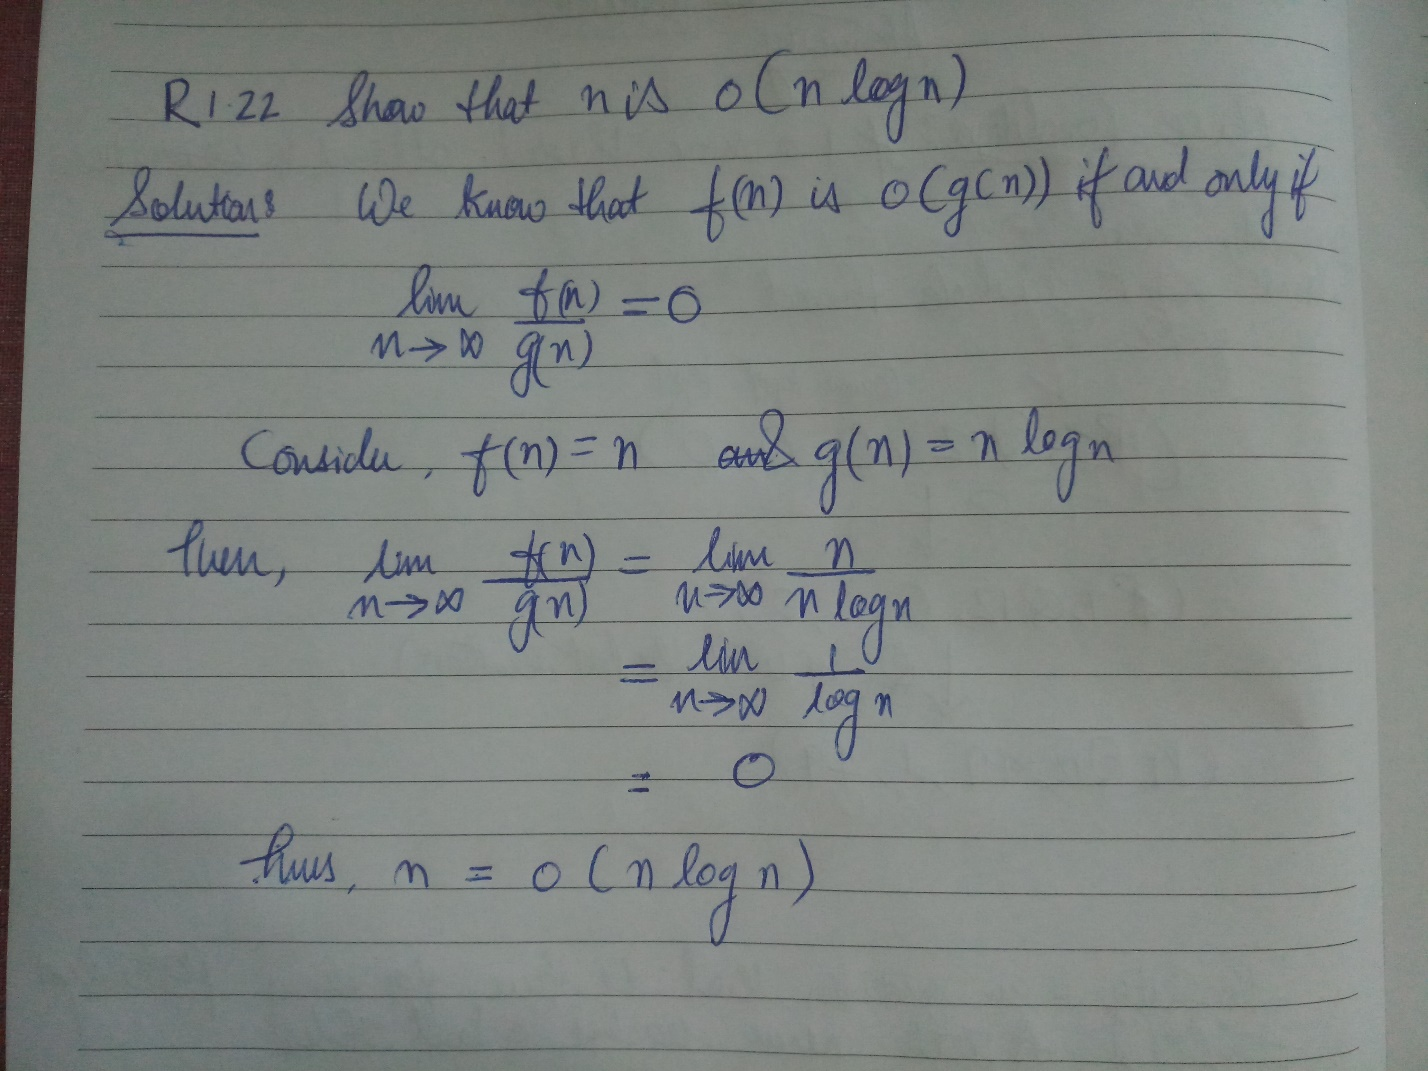 R1.22 Show that n is o(n log n)
Solution: We know that f(n) is o(g(n)) if and only if
lim n→∞ f(n)/g(n) = 0
Consider, f(n) = n and g(n) = n log n
then, lim n→∞ f(n)/g(n) = lim n→∞ n/(n log n)
= lim n→∞ 1/log n
= 0
thus, n = o(n log n)